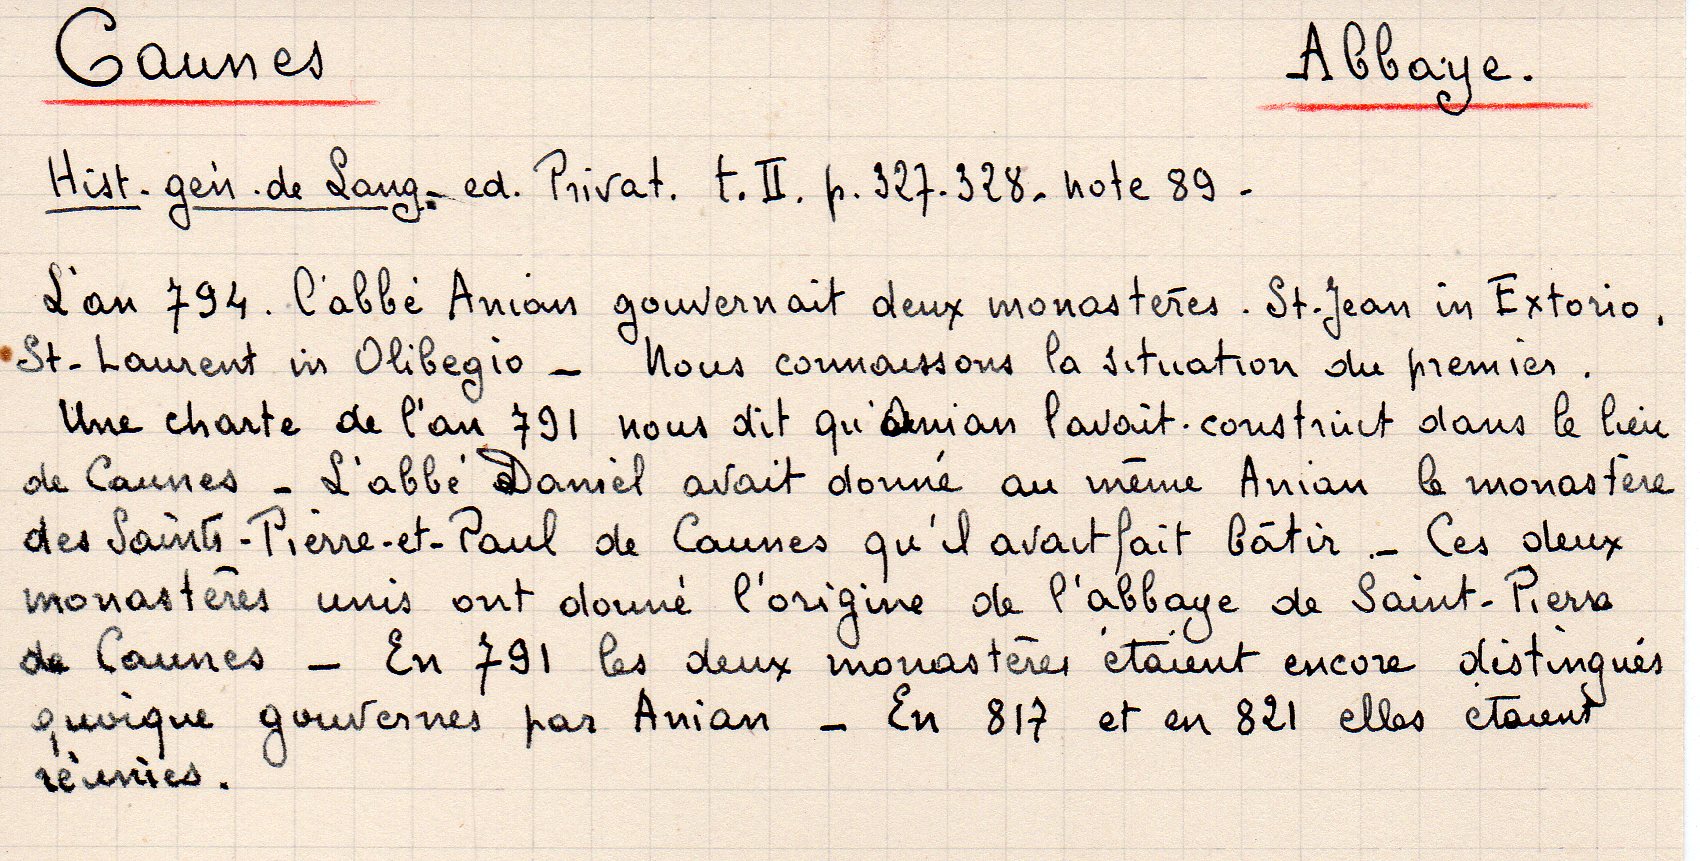 Caunes Abbaye.
Hist. gén. de Lang. ed. Privat. t. II. p. 327-328. note 89 -
L'an 794. l'abbé Anian gouvernait deux monastères. St-Jean in Extorio,
St-Laurent in Olibegio - Nous connaissons la situation du premier.
Une charte de l'an 791 nous dit qu'Anian l'avait construit dans le lieu
de Caunes - L'abbé Daniel avait donné au même Anian le monastère
des Saints-Pierre-et-Paul de Caunes qu'il avait fait bâtir. - Ces deux
monastères unis ont donné l'origine de l'abbaye de Saint-Pierre
de Caunes - En 791 les deux monastères étaient encore distingués
quoique gouvernes par Anian - En 817 et en 821 elles étaient
réunies.